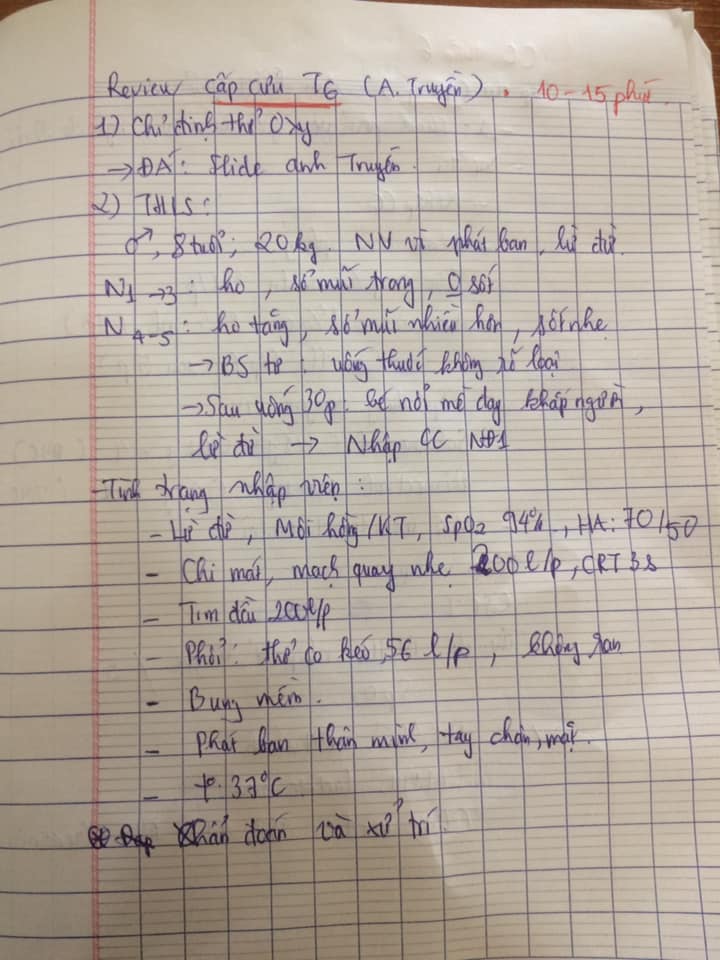 Review cấp cứu T6 (A. Truyền). 10-15 phút.
1) Chỉ định thở Oxy
→ ĐA: Slide anh Truyền.
2) THLS:
♂, 8 tuổi, 20kg. NV vì phát ban, lừ đừ.
N1→3: ho, sổ mũi trong, 0 sốt
N4-5: ho tăng, sổ mũi nhiều hơn, sốt nhẹ
→ BS tư: uống thuốc không rõ loại
→ Sau uống 30p: bé nổi mề đay khắp người,
lừ đừ → Nhập CC NĐ1
- Tình trạng nhập viện:
- Lừ đừ, Môi hồng/KT, SpO2 94%, HA: 70/50
- Chi mát, mạch quay nhẹ 200 l/p, CRT 3s
- Tim đều 200l/p
- Phổi: thở co kéo 56 l/p, không ran
- Bụng mềm.
- Phát ban thân mình, tay chân, mặt.
- t°: 37°C
Chẩn đoán và xử trí.